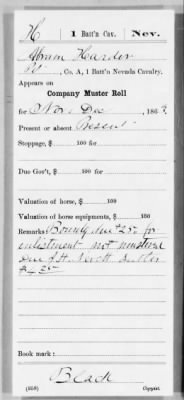 H | 1 Batt'n Cav. | Nev.
Abram Harder
Pvt, Co. A, 1 Batt'n Nevada Cavalry.
Appears on
Company Muster Roll
for Nov. Dec, 186
Present or absent Present
Stoppage, $ 100 for
Due Gov't, $ 100 for
Valuation of horse, $ 100
Valuation of horse equipments, $ 100
Remarks Bounty due $25 for
enlistment not mustered
Due
$
Book mark:
Black
(358) Copyist.